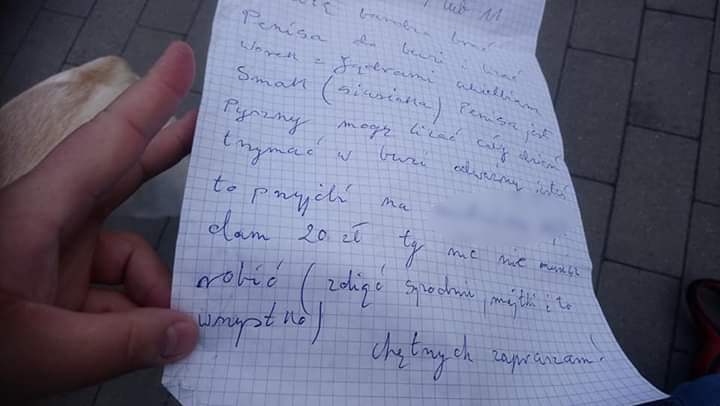 lub 11
bardzo brać
Penisa do buzi i lizać
worek z Jądrami uwielbiam
Smak (siusiaka) Penisa jest
Pyszny mogę lizać cały dzień
trzymać w buzi odważny jesteś
to przyjdź na
dam 20 zł ty nic nie musisz
robić (zdjąć spodnie, majtki i to
wszystko)
chętnych zapraszam!